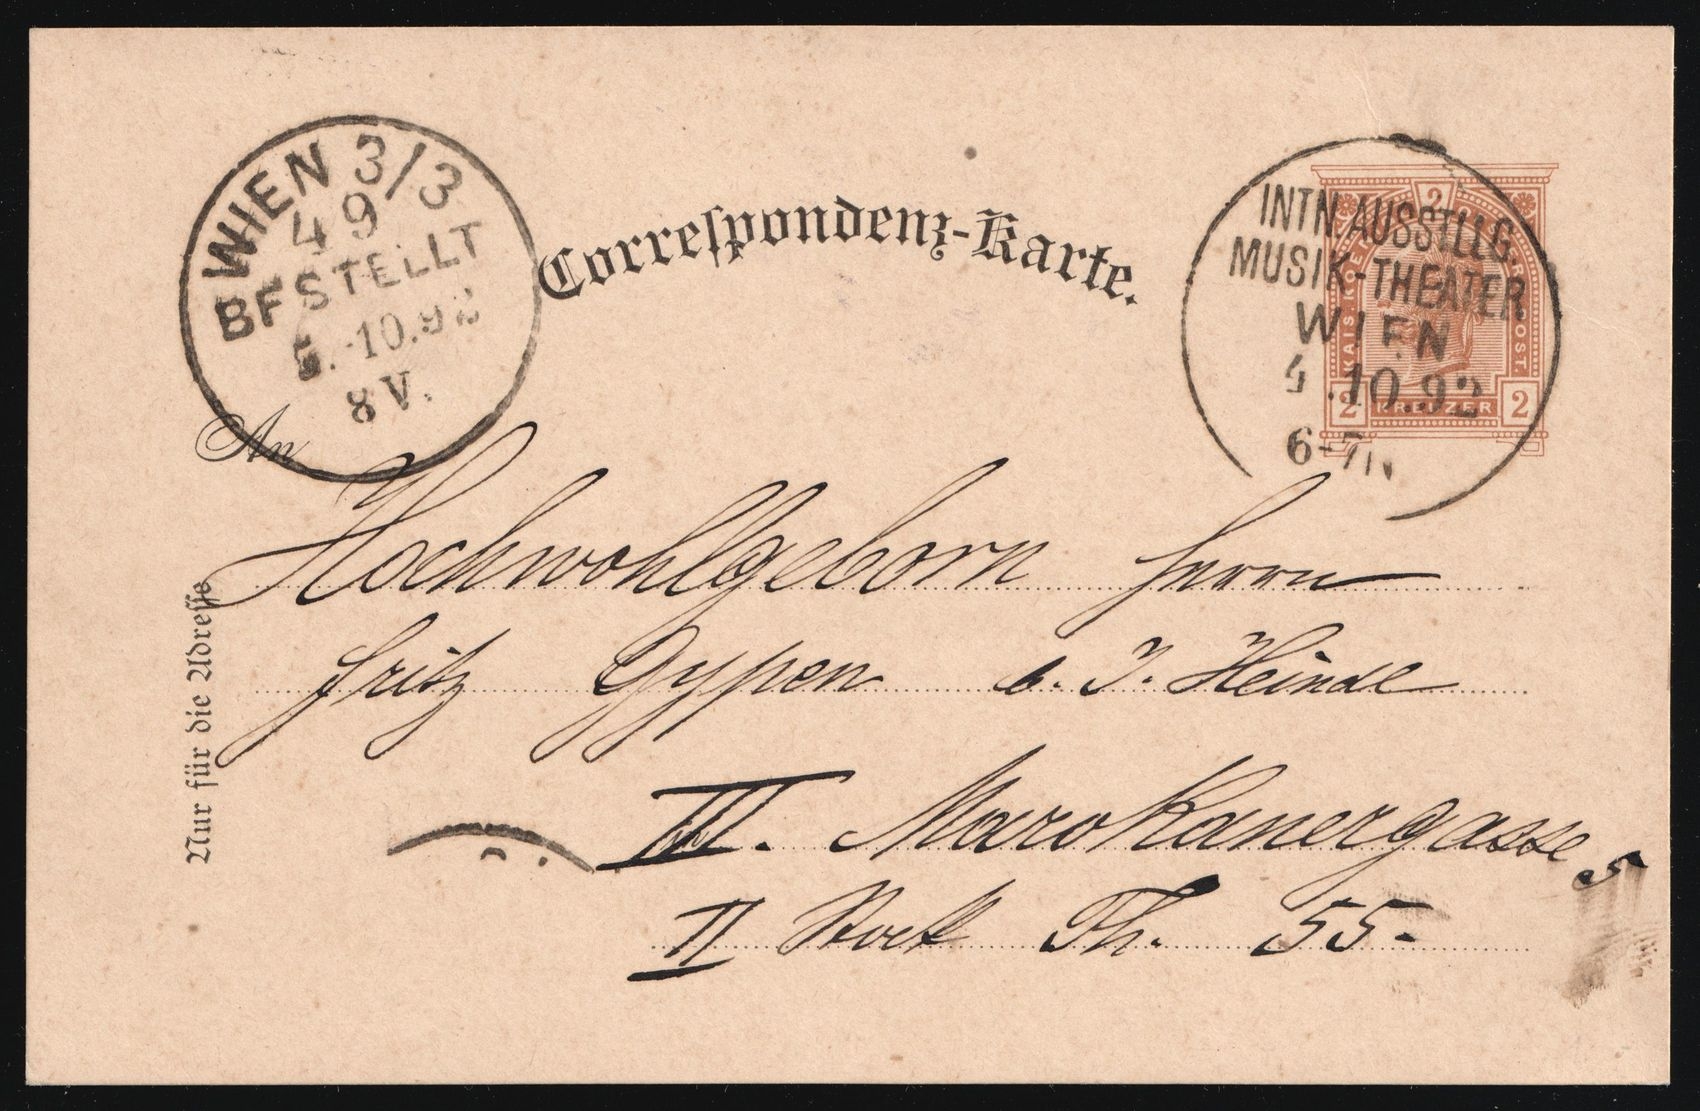 WIEN 3/3
49
BESTELLT
5.10.92
8 V.
Correſpondenz-Karte.
INTN. AUSSTLLG.
MUSIK-THEATER
WIEN
4.10.92
6-7N
2
KAIS. KOE
POST
2 KREUZER 2
An
Hochwohlgeborn Herrn
Fritz Gypen b. J. Heinde
III. Marokanergasse 5
II Stock Th. 55-
Nur für die Adreſſe